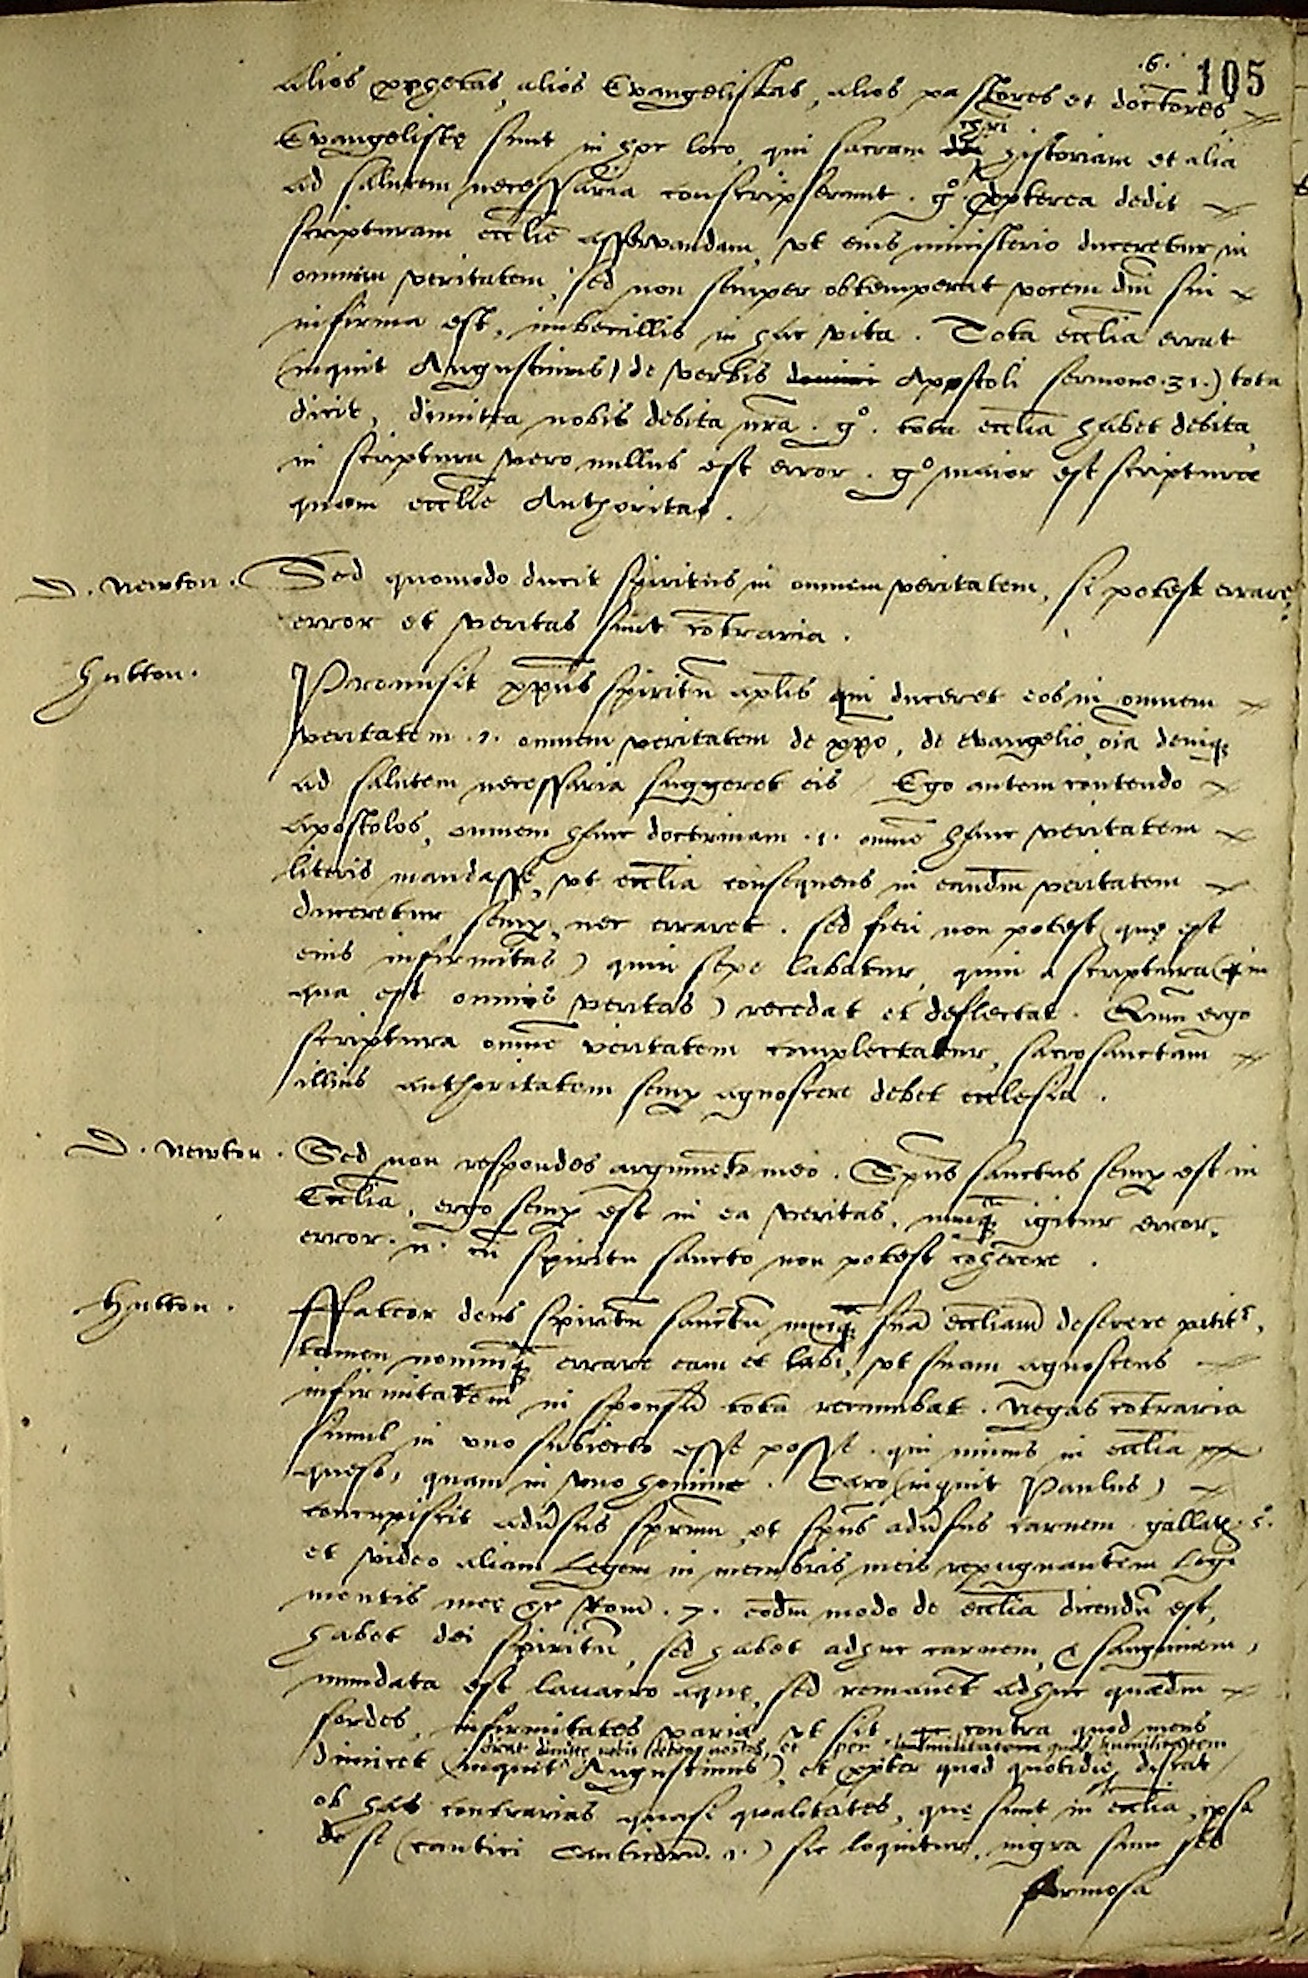 .6. 105
alios prophetas, alios Evangelistas, alios pastores et doctores
chri
Evangelistę sunt in hoc loco, qui sacram historiam et alia
ad salutem necessaria conscripserunt. gº. propterea dedit
scripturam ecclie asservandam, vt eius ministerio duceretur in
omnem veritatem, sed non semper obtemperat vocem dni sui
infirma est, imbecillis in hac vita. Tota ecclia errat
(inquit Augustinus) de verbis domini Apostoli sermone.31.) tota
dicit, dimitta nobis debita nra. gº. tota ecclia habet debita,
in scriptura vero nullus est error. gº maior est scripturae
quam ecclie Authoritas.
D. Newton. Sed quomodo ducit spiritus in omnem veritatem, si potest errare,
error et veritas sunt cotraria.
Hutton. Promisit xpus spiritu aplis qui duceret eos in omnem
veritatem .i. omnem veritatem de xpo, de evangelio, oia deniq
ad salutem necessaria suggeret eis. Ego autem contendo
Apostolos, omnem hanc doctrinam .i. omne hanc veritatem
literis mandasse, vt ecclia consequens in eandm veritatem
duceretur semp, nec erraret. sed fieri non potest (quę est
eius infirmitas) quin sepe labatur, quin a scriptura (in
qua est omnis veritas) recedat et deflectat. Quum ergo
scriptura omne veritatem complectatur, sacrosanctam
illius authoritatem semp agnoscere debet ecclesia.
D. Newton. Sed non respondes argumeto meo. Spus sanctus semp est in
Ecclia, ergo semp est in ea veritas, nunq igitur error.
error .n. cu spiritu sancto non potest coherere.
Hutton. Ffateor deus spiritu sanctu nunq sua eccliam deserere patitr,
tamen nonnunq errare eam et labi, vt suam agnoscens
infirmitatem in sponsu tota recumbat. Negas cotraria
simul in vno subiecto esse posse. qui minus in ecclia
queso, quam in vno homine. Caro (inquit Paulus)
concupiscit adusus sprum, et spus adusus carnem. gallat. 5.
et video aliam Legem in membris meis repugnantem Legi
mentis meę &c Rom. 7. eodm modo de ecclia dicendu est,
habet dei spiritu, sed habet adhuc carnem, & sanguinem,
mundata est lavacro aquę, sed remanet adhuc quaedm
sordes, infirmitates varia, vt sit contra quod mens
dicat dimitte nobis debita nostra, et per humilitatem
dimicet (inquit Augustinus), et propter quod quotidie discat
ob has contrarias quasi qualitates, quę sunt in ecclia, ipsa
de se (cantici Canticoru. 1.) sic loquitur, nigra sum sed
formosa